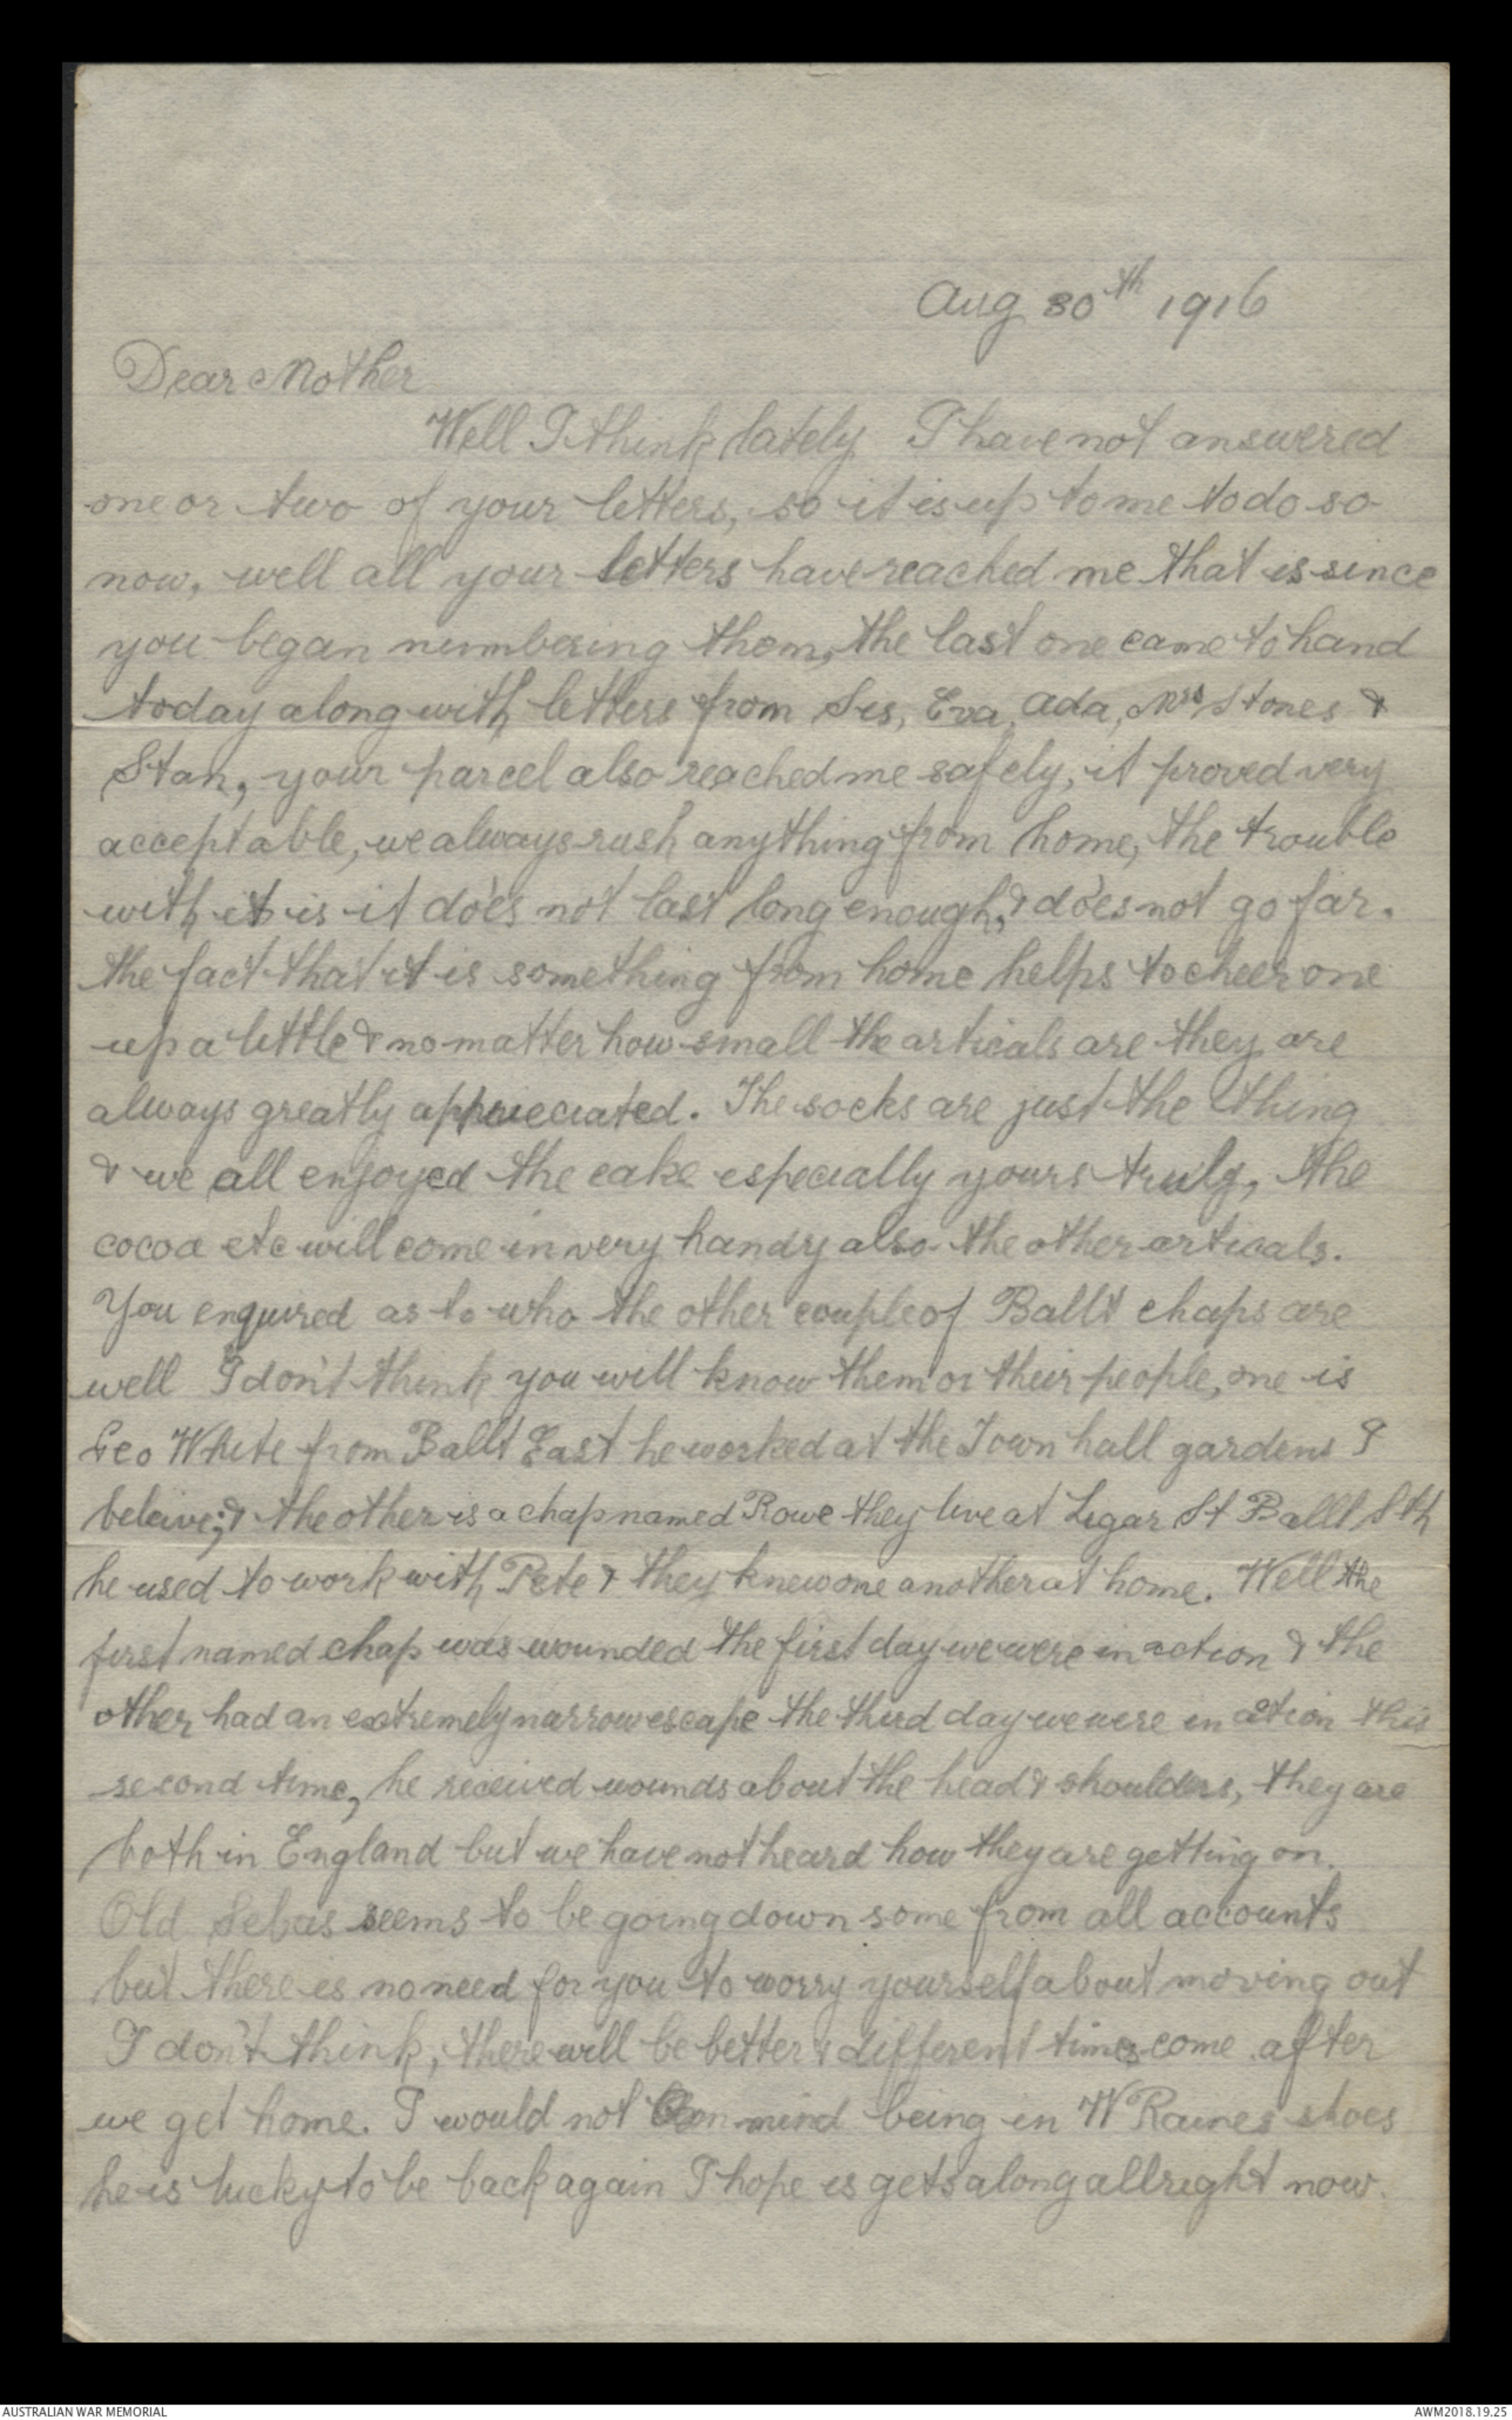 Aug 30th 1916
Dear Mother
Well I think lately I have not answered
one or two of your letters, so it is up to me to do so
now, well all your letters have reached me that is since
you began numbering them, the last one came to hand
today along with letters from Sis, Eva, Ada, Mrs Stones &
Stan, your parcel also reached me safely, it proved very
acceptable, we always rush anything from home, the trouble
with it is it does not last long enough, & does not go far.
the fact that it is something from home helps to cheer one
up a little & no matter how small the articals are they are
always greatly appreciated. The socks are just the thing
& we all enjoyed the cake especially yours truly, the
cocoa etc will come in very handy also the other articals.
You enquired as to who the other couple of Ballt chaps are
well I don't think you will know them or their people, one is
Geo White from Ballt East he worked at the Town hall gardens I
beleive; & the other is a chap named Rowe they live at Legar St Ballt Sth
he used to work with Pete & they knew one another at home. Well the
first named chap was wounded the first day we were in action & the
other had an extremely narrow escape the third day we were in action this
second time, he received wounds about the head & shoulders, they are
both in England but we have not heard how they are getting on.
Old Sebas seems to be going down some from all accounts
but there is no need for you to worry yourself about moving out
I don't think, there will be better & different times come after
we get home. I would not mind being in W Raines shoes
he is lucky to be back again I hope is gets along allright now.
AUSTRALIAN WAR MEMORIAL
AWM2018.19.25